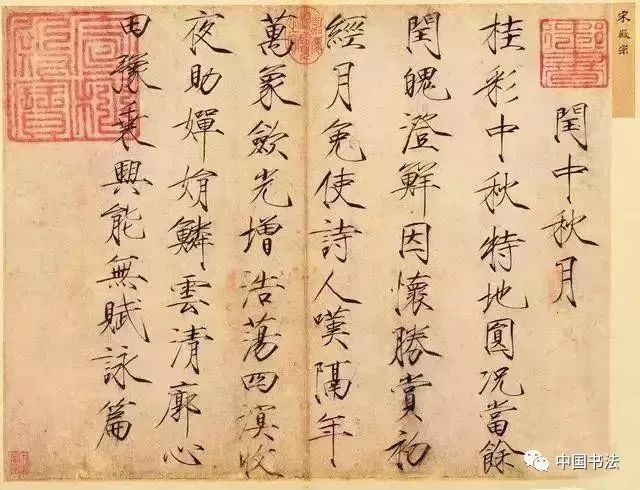 宋徽宗
閏中秋月
桂彩中秋特地圓况當餘
閏魄澄鮮因懷勝賞初
經月免使詩人嘆隔年
萬象歛光增浩蕩四溟收
夜助嬋娟鱗雲清廓心
田豫乘興能無賦詠篇
中国书法